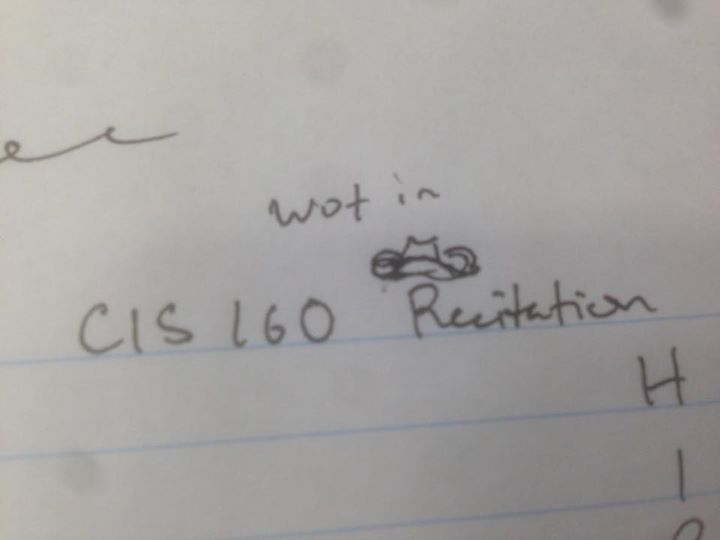 wot in
CIS 160 Recitation
H
I